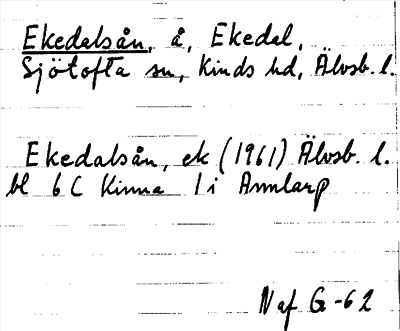 Ekedalsån, å, Ekedal,
Sjötofta sn, Kinds hd, Älvsb. l.
Ekedalsån, ek (1961) Älvsb. l.
bl 6 C Kinna 1 i Annlarp
Naf G-62